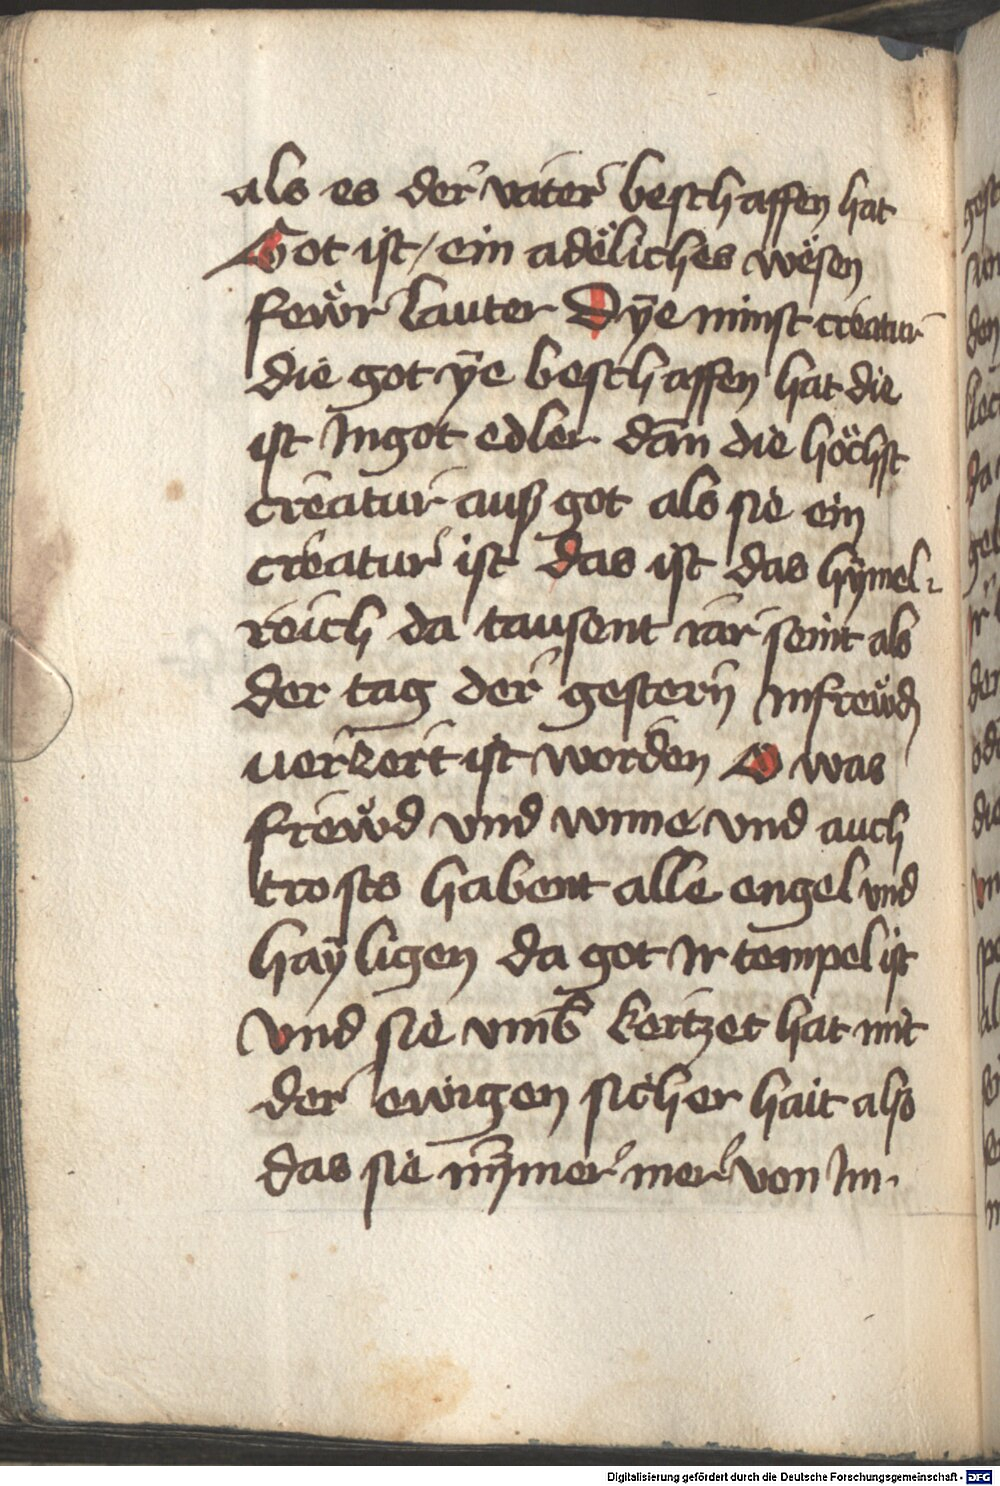 als es der vater beschaffen hat
Got ist / ein adëliches wësen
fewr lauter Dÿe minst creatur
die got ÿe beschaffen hat die
ist Ingot edler dan̄ die höchst
creatur auß got als sie ein
creatur ist das ist das hÿmel-
reich da tausent iar seint als
der tag der gestern Infrewd
uerzert ist worden O was
frewd vnd wnne vnd auch
trosts habent alle engel vnd
haÿligen da got Ir tempel ist
Vnd sie vmb kertzet hat mit
der ewigen sicher hait also
das sie nÿmer mer von Im
Digitalisierung gefördert durch die Deutsche Forschungsgemeinschaft - DFG